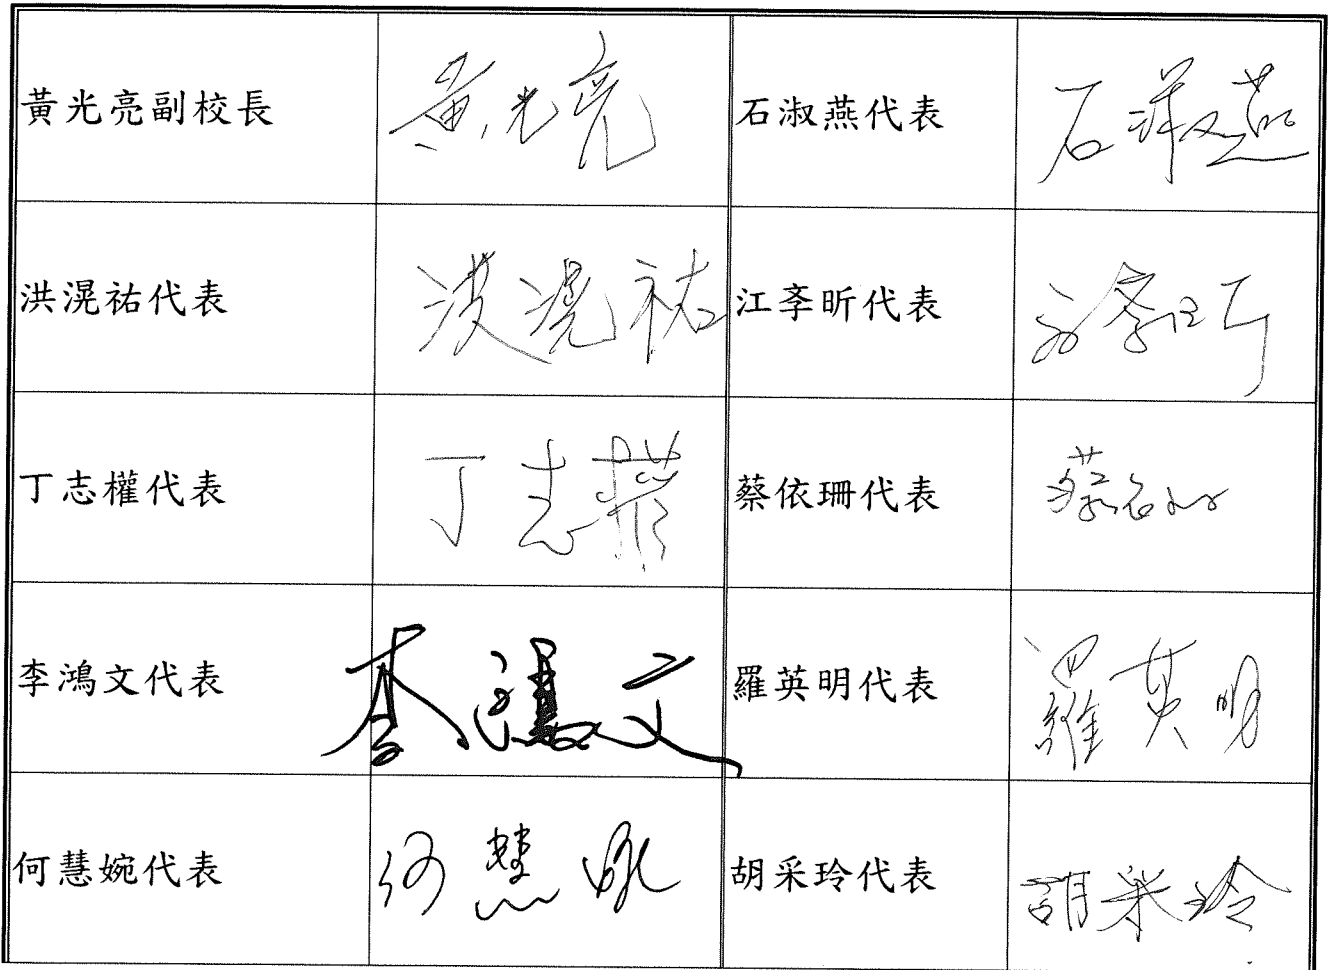 黃光亮副校長 黃光亮 石淑燕代表 石淑燕
洪滉祐代表 洪滉祐 江李昕代表 江李昕
丁志權代表 丁志權 蔡依珊代表 蔡依珊
李鴻文代表 李鴻文 羅英明代表 羅英明
何慧婉代表 何慧婉 胡采玲代表 胡采玲